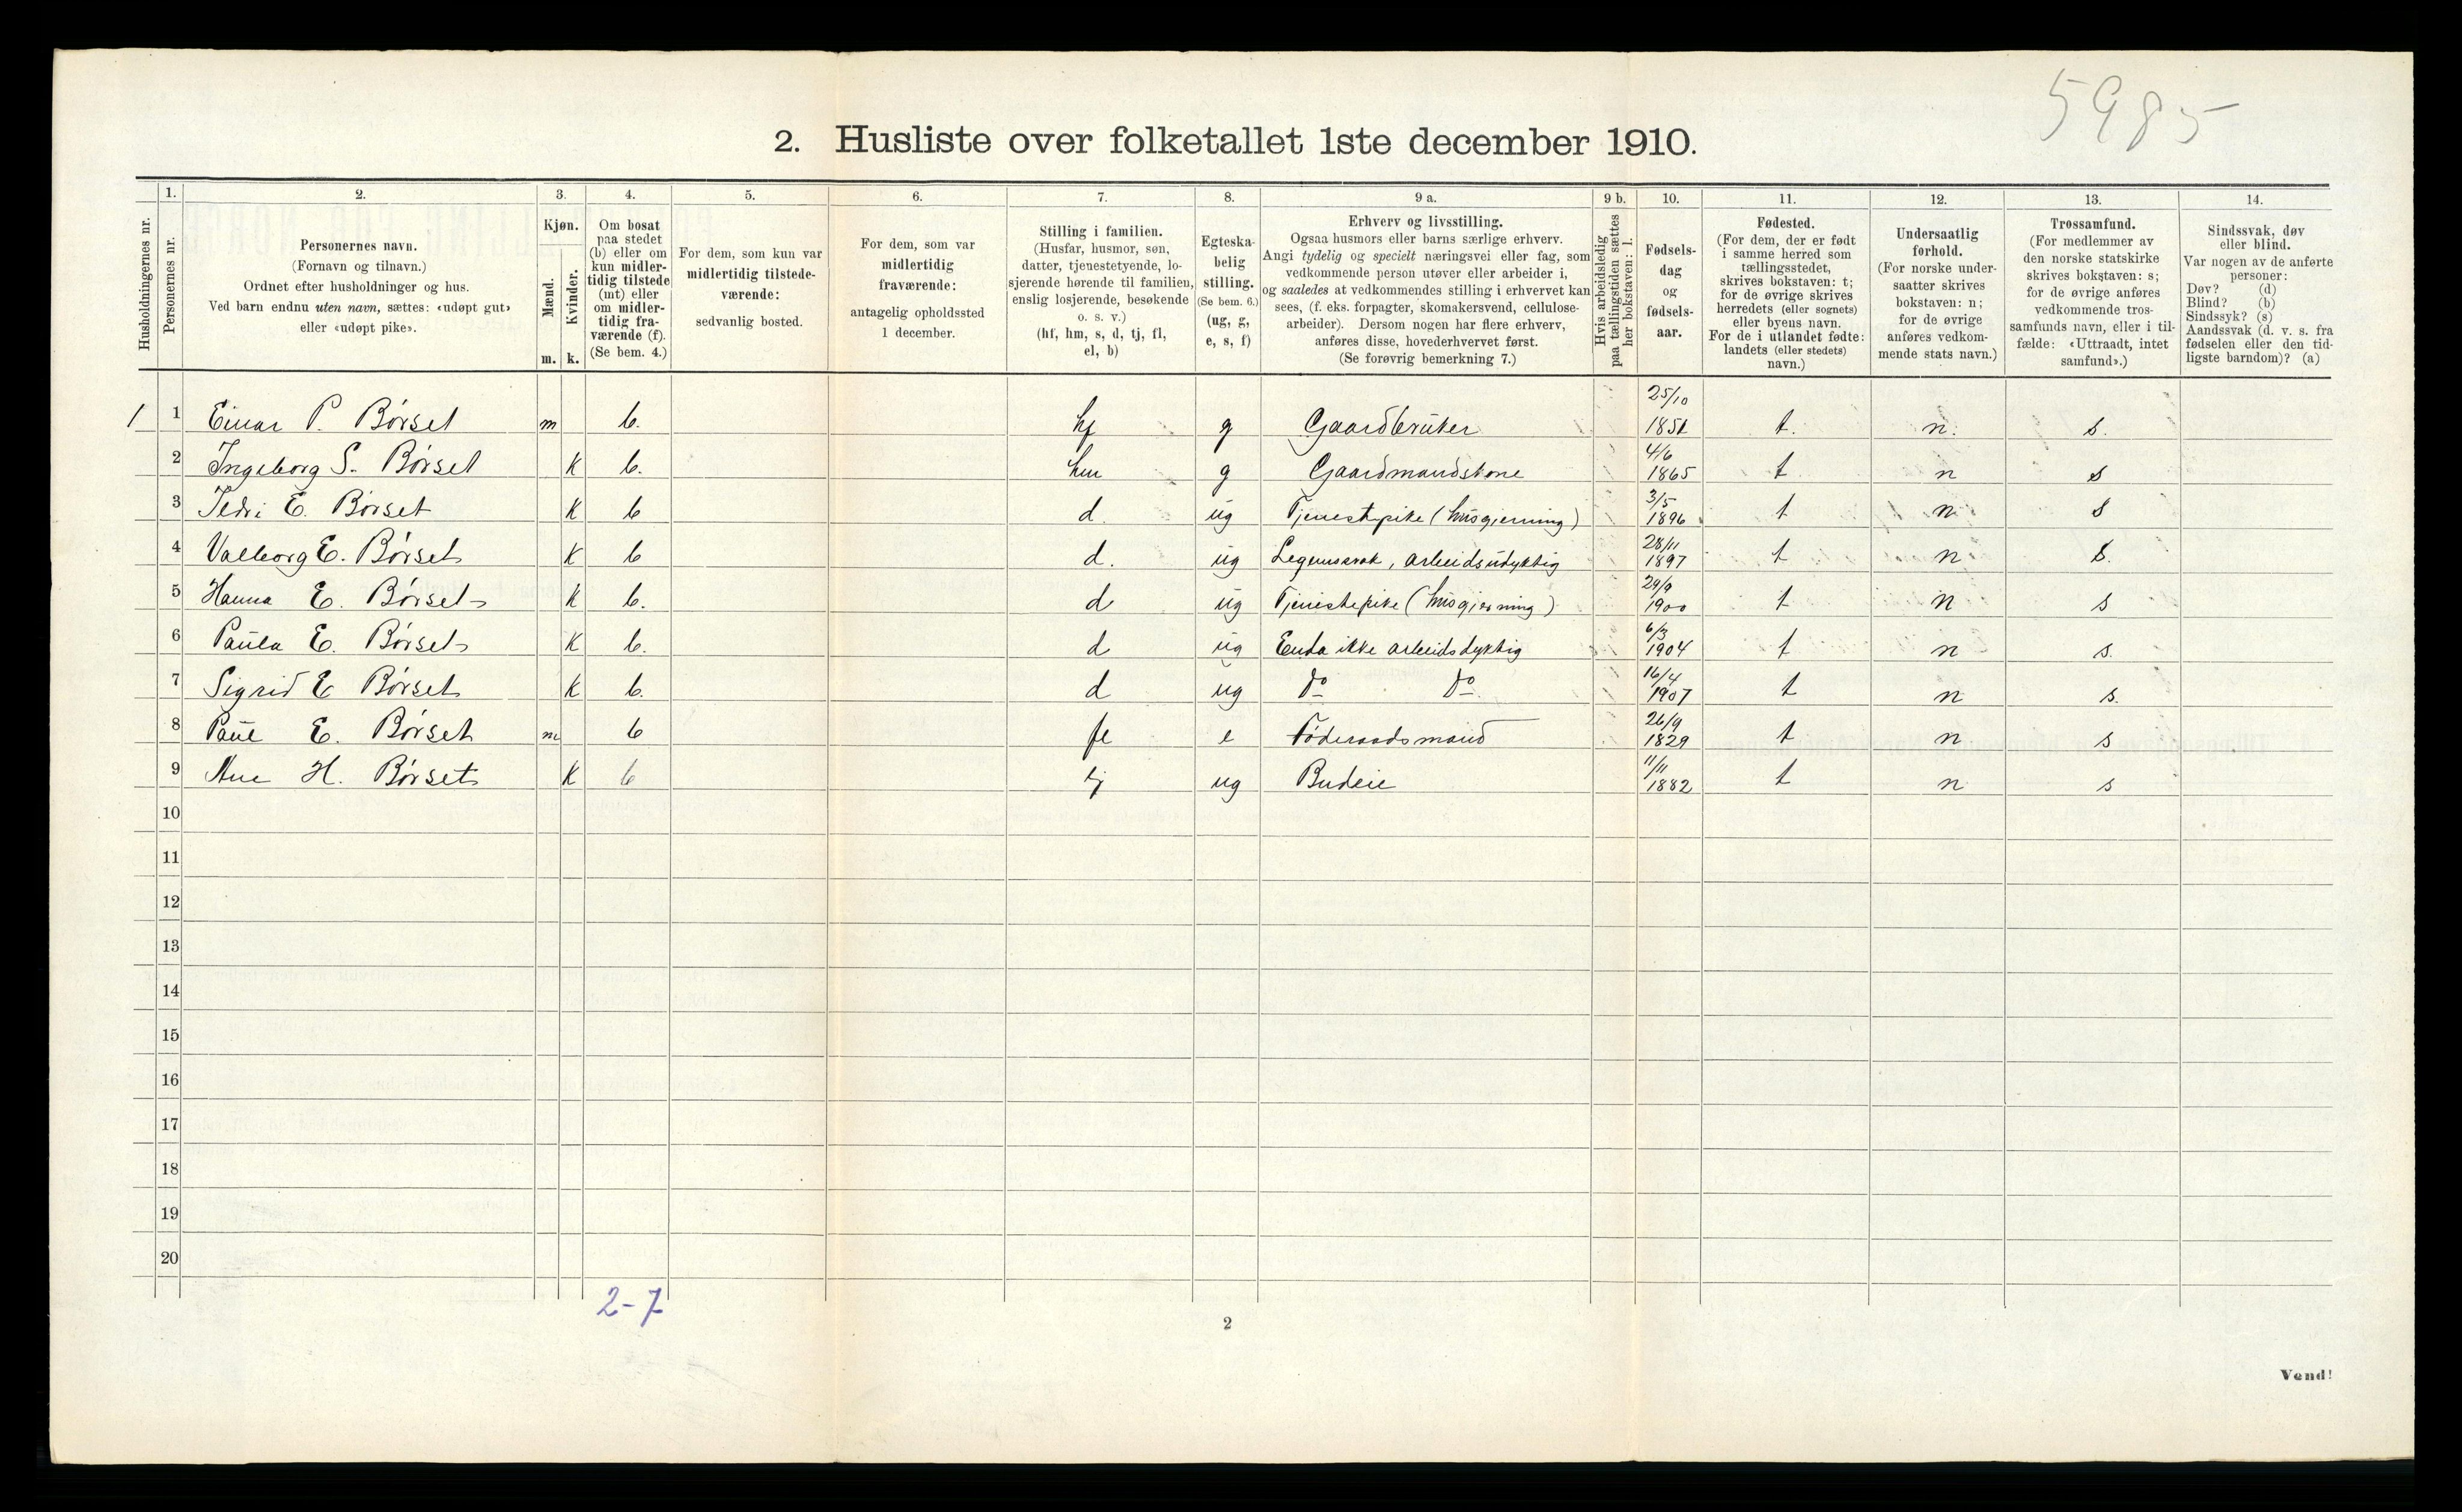 5985
2. Husliste over folketallet 1ste december 1910.
Husholdningernes nr.
1.
Personernes nr.
2.
Personernes navn.
(Fornavn og tilnavn.)
Ordnet efter husholdninger og hus.
Ved barn endnu uten navn, sættes: «udøpt gut»
eller «udøpt pike».
3.
Kjøn.
Mænd.
Kvinder.
m. k.
4.
Om bosat
paa stedet
(b) eller om
kun midler-
tidig tilstede
(mt) eller
om midler-
tidig fra-
værende (f).
(Se bem. 4.)
5.
For dem, som kun var
midlertidig tilstede-
værende:
sedvanlig bosted.
6.
For dem, som var
midlertidig
fraværende:
antagelig opholdssted
1 december.
7.
Stilling i familien.
(Husfar, husmor, søn,
datter, tjenestetyende, lo-
sjerende hørende til familien,
enslig losjerende, besøkende
o. s. v.)
(hf, hm, s, d, tj, fl,
el, b)
8.
Egteska-
belig
stilling.
(Se bem. 6.)
(ug, g,
e, s, f)
9 a.
Erhverv og livsstilling.
Ogsaa husmors eller barns særlige erhverv.
Angi tydelig og specielt næringsvei eller fag, som
vedkommende person utøver eller arbeider i,
og saaledes at vedkommendes stilling i erhvervet kan
sees, (f. eks. forpagter, skomakersvend, cellulose-
arbeider). Dersom nogen har flere erhverv,
anføres disse, hovederhvervet først.
(Se forøvrig bemerkning 7.)
9 b.
Hvis arbeidsledig
paa tællingstiden sættes
her bokstaven: l.
10.
Fødsels-
dag
og
fødsels-
aar.
11.
Fødested.
(For dem, der er født
i samme herred som
tællingsstedet,
skrives bokstaven: t;
for de øvrige skrives
herredets (eller sognets)
eller byens navn.
For de i utlandet fødte:
landets (eller stedets)
navn.)
12.
Undersaatlig
forhold.
(For norske under-
saatter skrives
bokstaven: n;
for de øvrige
anføres vedkom-
mende stats navn.)
13.
Trossamfund.
(For medlemmer av
den norske statskirke
skrives bokstaven: s;
for de øvrige anføres
vedkommende tros-
samfunds navn, eller i til-
fælde: «Uttraadt, intet
samfund».)
14.
Sindssvak, døv
eller blind.
Var nogen av de anførte
personer:
Døv? (d)
Blind? (b)
Sindssyk? (s)
Aandssvak (d. v. s. fra
fødselen eller den tid-
ligste barndom)? (a)
1 1 Einar P. Børset m b. hf g Gaardbruker 25/10 1851 t. n. s.
2 Ingeborg S. Børset K b. hm g Gaardmandskone 4/6 1865 t n s
3 E. Børset K b d. ug Tjenestpike (husgjerning) 3/5 1896 t n s
4 Valborg E. Børset K b d. ug Legemssvak, arbeidsudyktig 28/11 1897 t n s.
5 Hanna E. Børset K b. d ug Tjenestepike (husgjerning) 29/9 1900 t n s
6 Paula E. Børset K b. d ug Enda ikke arbeidsdyktig 6/3 1904 t n s.
7 Sigrid E Børset K b. d ug Do Do 16/4 1907 t n s.
8 Paul E. Børset m b fl e Føderaadsmand 26/9 1829 t n s
9 Ane H. Børset K b tj ug Budeie 11/11 1882 t n s
10
11
12
13
14
15
16
17
18
19
20
2-7
2
Vend!